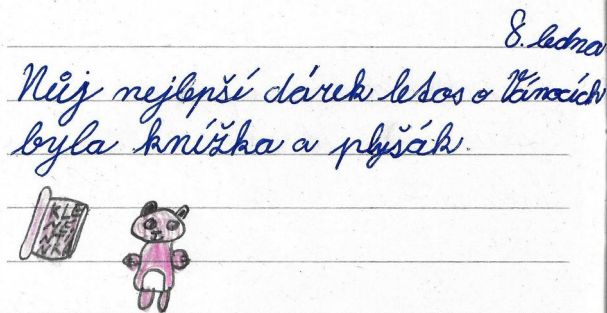 8. ledna
Můj nejlepší dárek letos o Vánocích
byla knížka a plyšák.
KLE